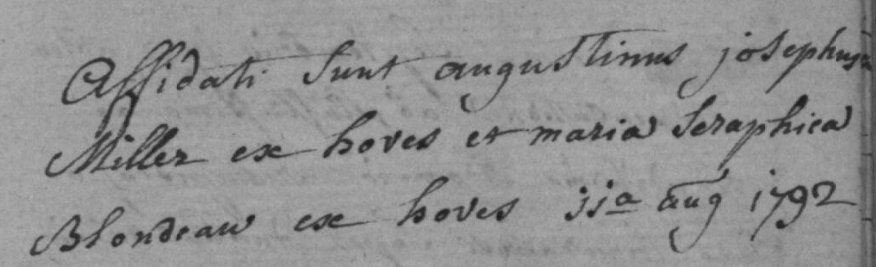 Affidati sunt augustinus josephus
Miller ex hoves et maria Seraphica
Blondeau ex hoves 11a aug 1792